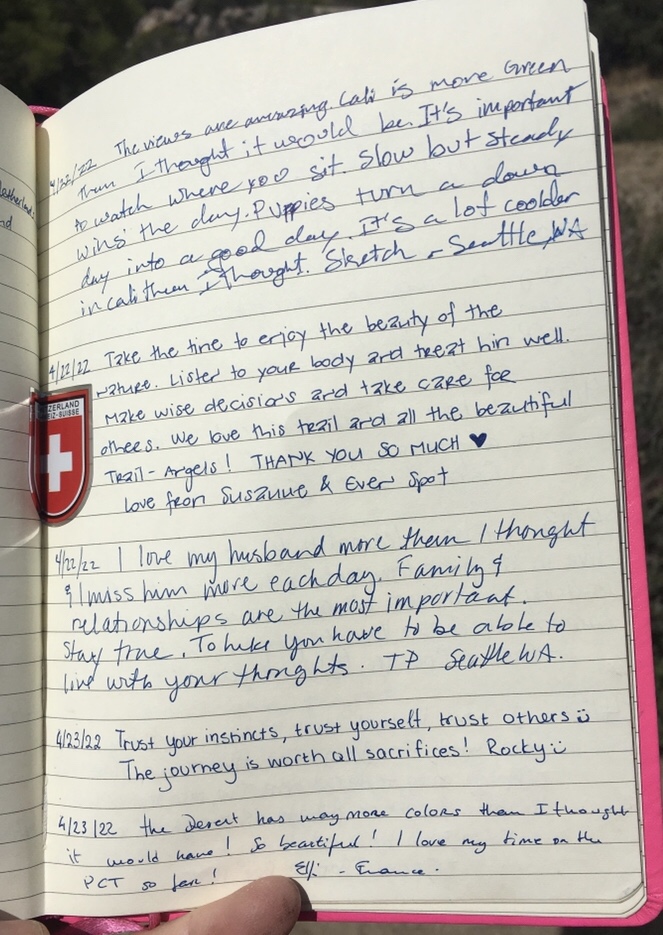 etherland
nd
4/22/22 The views are amazing. Cali is more Green
than I thought it would be. It's important
to watch where you sit. Slow but steady
wins the day. Puppies turn a down
day into a good day. It's a lot coolder
in cali then I thought. Sketch - Seattle, WA
4/22/22 Take the time to enjoy the beauty of the
nature. Listen to your body and treat him well.
Make wise decisions and take care for
others. We love this trail and all the beautiful
Trail-Angels! THANK YOU SO MUCH ♥
Love from Susanne & Ever Spot
ZERLAND
EIZ-SUISSE
4/22/22 I love my husband more them I thought
& I miss him more each day. Family &
relationships are the most important.
Stay true. To hike you have to be able to
live with your thoughts. TP Seattle WA.
4/23/22 Trust your instincts, trust yourself, trust others ü
The journey is worth all sacrifices! Rocky ü
4/23/22 the Desert has way more colors than I thought
it would have! So beautiful! I love my time on the
PCT so far! Elli - France.